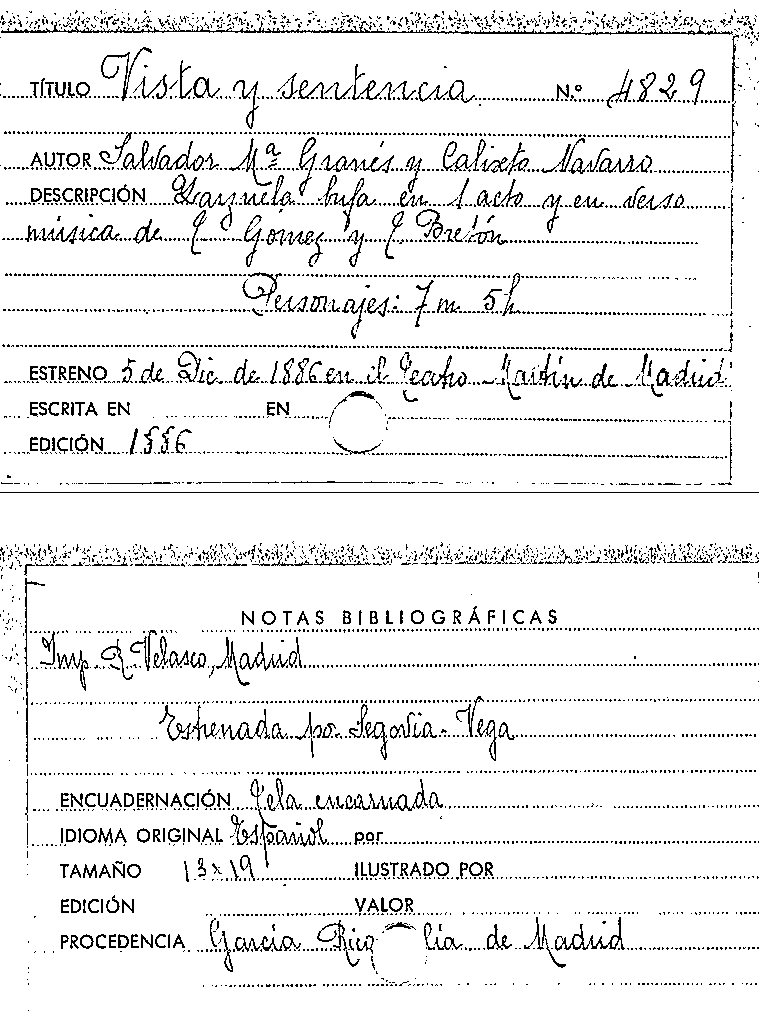 TÍTULO Vista y sentencia N.º 4829
AUTOR Salvador Mª Granés y Calixto Navarro
DESCRIPCIÓN Zarzuela bufa en 1 acto y en verso
música de T Gomez y T Bretón
Personajes: 7 m 5 h
ESTRENO 5 de Dic de 1886 en el Teatro Martín de Madrid
ESCRITA EN EN
EDICIÓN 1886
NOTAS BIBLIOGRÁFICAS
Imp. R. Velasco, Madrid
Estrenada por Segovia-Vega
ENCUADERNACIÓN Tela encarnada
IDIOMA ORIGINAL Español por
TAMAÑO 13x19 ILUSTRADO POR
EDICIÓN VALOR
PROCEDENCIA García Rico lía de Madrid